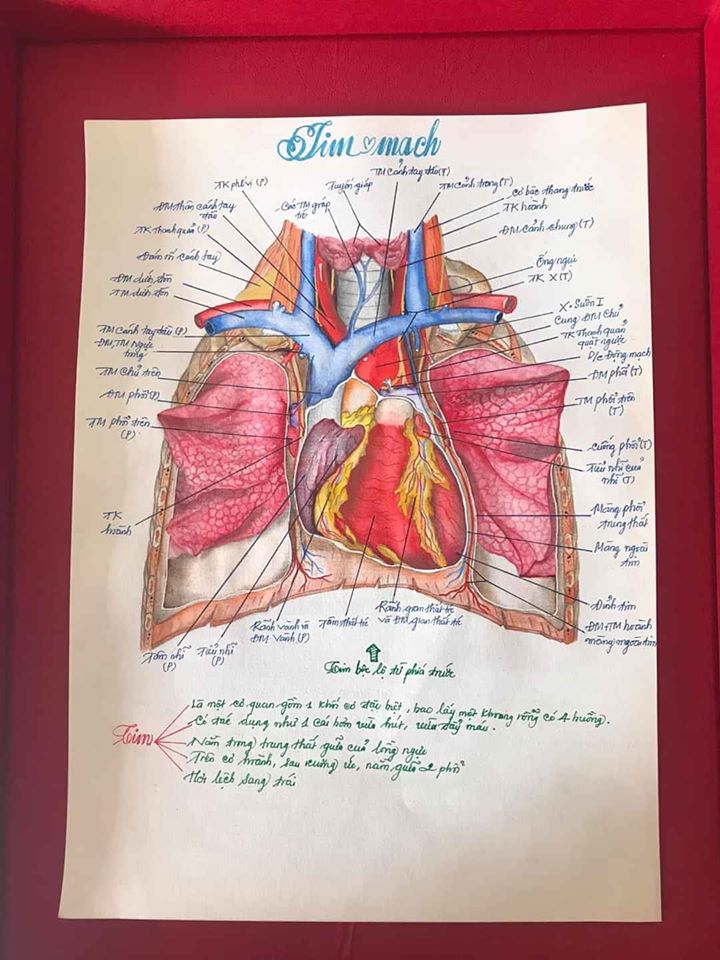 Tim mạch
TM cánh tay đầu (T)
TK phế vị (P)
Tuyến giáp
TM cảnh trong (T)
ĐM thân cánh tay
đầu
Các TM giáp
Cơ bậc thang trước
TK hoành
TK thanh quản (P)
ĐM cảnh chung (T)
Đám rối cánh tay
Ống ngực
TK X (T)
ĐM dưới đòn
TM dưới đòn
X. Sườn I
Cung ĐM chủ
TM cánh tay đầu (P)
TK Thanh quản
quặt ngược
ĐM, TM ngực
trong
D/c Động mạch
TM chủ trên
ĐM phổi (T)
ĐM phổi (P)
TM phổi trên
(T)
TM phổi trên
(P)
cuống phổi (T)
Tiểu nhĩ của
nhĩ (T)
TK
hoành
Màng phổi
trung thất
Màng ngoài
tim
Đỉnh tim
ĐM+TM hoành
màng ngoài tim
Tâm nhĩ
(P)
Tiểu nhĩ
(P)
Rãnh vành và
ĐM vành (P)
Tâm thất
Rãnh gian thất
và ĐM gian thất
Tim bộc lộ từ phía trước
Là một cơ quan gồm 1 khối cơ đặc biệt, bao lấy một khoang rỗng có 4 buồng.
Có tác dụng như 1 cái bơm vừa hút, vừa đẩy máu.
Tim
Nằm trong trung thất giữa của lồng ngực
Trên cơ hoành, sau xương ức, nằm giữa 2 phổi
Hơi lệch sang trái